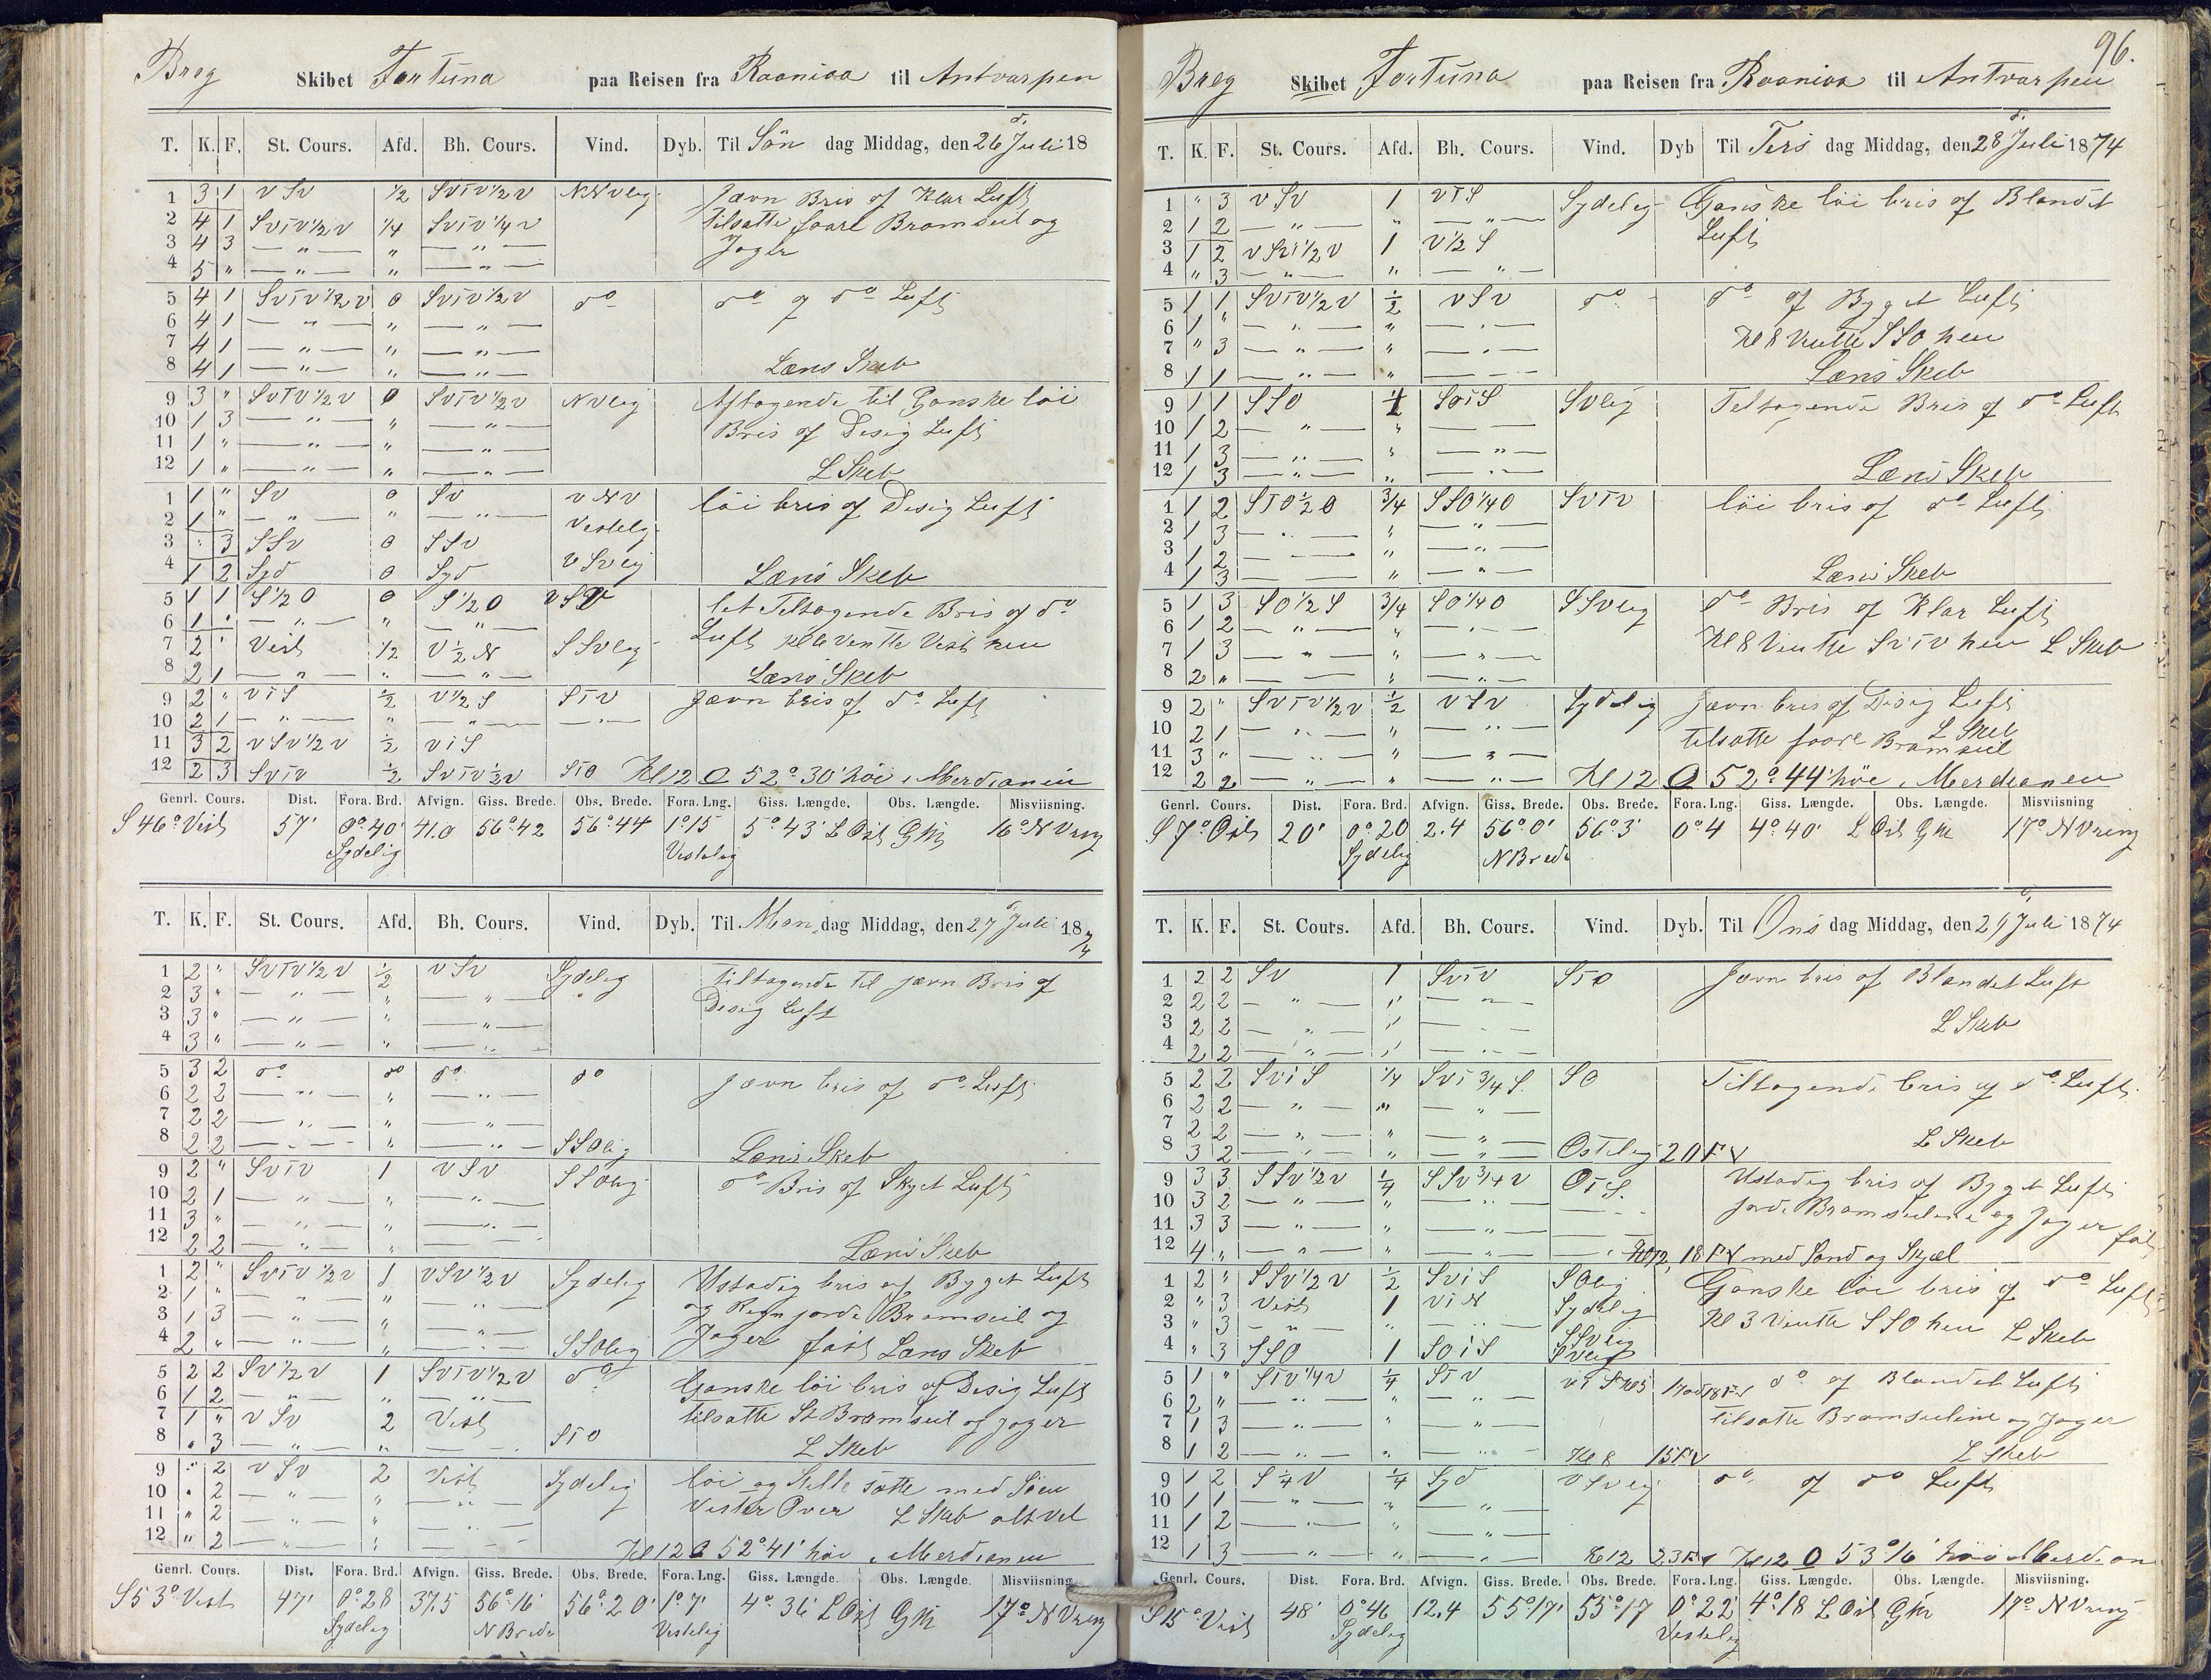 Breg Skibet Fortuna paa Reisen fra Raaniva til Antvarpen
T. K. F. St. Cours. Afd. Bh. Cours. Vind. Dyb. Til Søn dag Middag, den 26 d. Juli 18
1 3 1 V S V 1/2 S V T V 1/2 V N N V leg Jævn Bris of Klar Luft
2 4 1 S V T V 1/2 V 1/4 S V T V 1/4 V tilsatte foare Bramseil og
3 4 3 — " — " — " — Jager
4 5 " — " — " — " —
5 4 1 S V T V 1/2 V 0 S V T V 1/2 V do do of do Luft
6 4 1 — " — " — " —
7 4 1 — " — " — " —
8 4 1 — " — " — " — Læns Skeb
9 3 " S V T V 1/2 V 0 S V T V 1/2 V N V leg Aftagende til Ganske löi
10 1 3 — " — " — " — Bris of Disig Luft
11 1 " — " — " — " —
12 1 " — " — " — " — L Skeb
1 1 " S V 0 S V V N V löi bris of Disig Luft
2 1 " — " — " — " — Vestelig
3 " 3 S S V 0 S S V
4 1 2 Syd 0 Syd V S V eg Læns Skeb
5 1 1 S 1/2 O 0 S 1/2 O V S V let Teltagende Bris of do
6 1 " — " — " — " — Luft kl 6 Ventte Vest hen
7 2 " Vest 1/2 V 1/2 N S S V leg
8 2 1 — " — " — " — Læns Skeb
9 2 " V T S 1/2 V 1/2 S S T V Jævn bris of do Luft
10 2 1 — " — " — " — — " —
11 3 2 V S V 1/2 V 1/2 V T S
12 2 3 S V T V 1/2 S V T V 1/2 V S T O Kl 12 O 52° 30' höi i Merdianen
Genrl. Cours. Dist. Fora. Brd. Afvign. Giss. Brede. Obs. Brede. Fora. Lng. Giss. Længde. Obs. Længde. Misviisning.
S 46° Vest 57' 0° 40' 41.0 56° 42 56° 44 1° 15 5° 43' L Ost G 16° N V
Sydelig Vestelig
T. K. F. St. Cours. Afd. Bh. Cours. Vind. Dyb. Til Man dag Middag, den 27 d Juli 1874
1 2 " S V T V 1/2 V 1/2 V S V Sydeleg Tiltagende til jævn Bris of
2 3 " — " — " — " — Disig Luft
3 3 " — " — " — " —
4 3 " — " — " — " —
5 3 2 do do do do Jævn bris of do Luft
6 2 2 — " — " — " —
7 2 2 — " — " — " —
8 2 2 — " — " — " — S S O lig Læns Skeb
9 2 " S V T V 1 V S V S S O leg do Bris of Skyet Luft
10 2 1 — " — " — " —
11 3 " — " — " — " —
12 2 2 — " — " — " — Læns Skeb
1 2 " S V T V 1/2 V 1 V S V 1/2 V Sydeleg Ustadig bris of Byget Luft
2 1 " — " — " — " — og Regn jorde Bramseil og
3 1 3 — " — " — " — Jager fast Læns Skeb
4 2 " — " — " — " — S S O leg
5 2 2 S V 1/2 V 1 S V T V 1/2 V do Ganske löi bris of Disig Luft
6 1 2 — " — " — " — tilsatte St Bramseil og Jager
7 1 " V S V 2 Vest
8 " 3 — " — " — " — S T O L Skeb
9 " 2 V S V 2 Vest Sydeleg löi og Stille satte med Söen
10 " 2 — " — " — " — Vester Over L Skeb alt Vel
11 " 2 — " — " — " —
12 " 2 — " — " — " — Kl 12 O 52° 41' höi i Merdianen
Genrl. Cours. Dist. Fora. Brd. Afvign. Giss. Brede. Obs. Brede. Fora. Lng. Giss. Længde. Obs. Længde. Misviisning.
S 53° Vest 47' 0° 28 37.5 56° 16' 56° 20' 1° 7' 4° 36' L Ost G 17° N V
Sydeleg N Brede Vestelig
96.
Breg Skibet Fortuna paa Reisen fra Raaniva til Antvarpen
T. K. F. St. Cours. Afd. Bh. Cours. Vind. Dyb Til Tirs dag Middag, den 28 d. Juli 1874
1 " 3 V S V 1 V T S Sydeleg Ganske löi bris of Blandet
2 1 2 — " — " — " — Luft
3 1 2 V S V 1/2 V 1 V 1/2 S
4 " 3 — " — " — " —
5 1 1 S V T V 1/2 V 1/2 V S V do do of Byget Luft
6 1 " — " — " — " — Kl 8 Ventte S S O hen
7 " 3 — " — " — " —
8 1 1 — " — " — " — Læns Skeb
9 1 1 S S O 1 S O T S S V leg Teltagende Bris of do Luft
10 1 2 — " — " — " —
11 1 3 — " — " — " —
12 1 3 — " — " — " — Læns Skeb
1 1 2 S T O 1/2 O 3/4 S S O 1/4 O S V T V löi bris of do Luft
2 1 3 — " — " — " —
3 1 2 — " — " — " —
4 1 3 — " — " — " — Læns Skeb
5 1 3 S O 1/2 S 3/4 S O 1/4 O S S V leg do Bris of Klar Luft
6 1 2 — " — " — " —
7 1 3 — " — " — " — Kl 8 Ventte S V T V hen L Skeb
8 2 " — " — " — " —
9 2 " S V T V 1/2 V 1/2 V S V Sydeleg Jævn bris of Disig Luft
10 2 1 — " — " — " — L Skeb
11 3 " — " — " — " — tilsatte foare Bramseil
12 2 2 — " — " — " — Kl 12 O 52° 44' höe i Merdianen
Genrl. Cours. Dist. Fora. Brd. Afvign. Giss. Brede. Obs. Brede. Fora. Lng. Giss. Længde. Obs. Længde. Misviisning
S 7° Ost 20' 0° 20 2.4 56° 0' 56° 3' 0° 4 4° 40' L Ost G 17° N V
Sydelig N Brede
T. K. F. St. Cours. Afd. Bh. Cours. Vind. Dyb. Til Ons dag Middag, den 29 d. Juli 1874
1 2 2 S V 1 S V T V S T O Jævn bris of Blandet Luft
2 2 2 — " — " — " —
3 2 2 — " — " — " — L Skeb
4 2 2 — " — " — " —
5 2 2 S V T S 1/4 S V T 3/4 S. S O Tiltagende bris of do Luft
6 2 2 — " — " — " —
7 2 2 — " — " — " —
8 3 2 — " — " — " — Osteleg 20 F V L Skeb
9 3 3 S S V 1/2 V 1/4 S S V 3/4 V O T S. Ustadig bris of Byget Luft
10 3 2 — " — " — " — jorde Bramseilene og Jager fast
11 3 3 — " — " — " —
12 4 " — " — " — " — Kl 12, 18 F V med Sand og Skjæl
1 2 " S S V 1/2 V 1/2 S V T S S O leg Ganske löi bris of do Luft
2 " 3 Vest 1 V T N Sydeleg Kl 3 Ventte S S O hen L Skeb
3 " 3 — " — " — " — S S V leg
4 " 3 S S O 1 S O T S S V leg
5 1 " S T V 1/4 V 1/4 S T V V T S Kl 5 17 od 18 F V do of Blandet Luft
6 2 " — " — " — " — tilsatte Bramseilene og Jager
7 1 3 — " — " — " —
8 1 2 — " — " — " — Kl 8 15 F V L Skeb
9 1 2 S 1/4 V 1/4 Syd V S V eg do of do Luft
10 1 1 — " — " — " —
11 1 2 — " — " — " —
12 1 3 — " — " — " — Kl 12 23 F V Kl 12 O 53° 16' höi Merdian
Genrl. Cours. Dist. Fora. Brd. Afvign. Giss. Brede. Obs. Brede. Fora. Lng. Giss. Længde. Obs. Længde. Misviisning.
S 15° Vest 48' 0° 46 12.4 55° 17' 55° 17 0° 22' 4° 18 L Ost G 17° N V
Sydeleg Vestelig